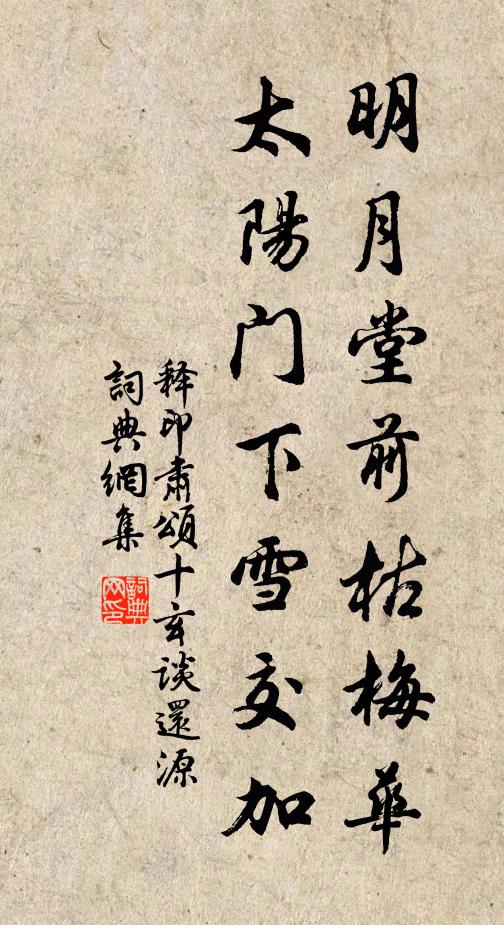 明月堂前枯梅華
太陽门下雪交加
释印肅頌十玄谈還源
詞典網集
詞典
网印